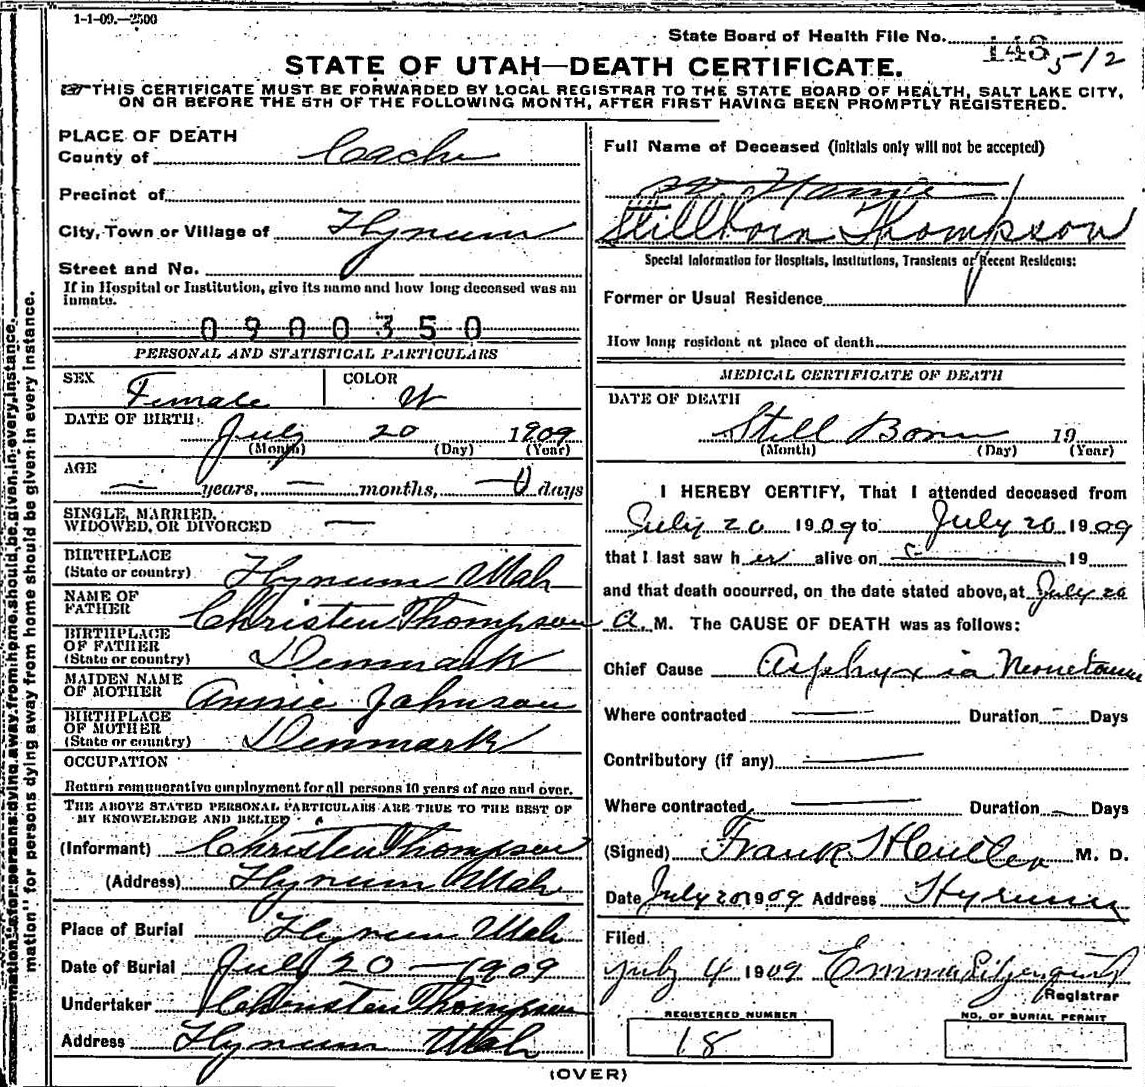 1-1-09.—2500
State Board of Health File No. 143 5/2
STATE OF UTAH—DEATH CERTIFICATE.
THIS CERTIFICATE MUST BE FORWARDED BY LOCAL REGISTRAR TO THE STATE BOARD OF HEALTH, SALT LAKE CITY,
ON OR BEFORE THE 5TH OF THE FOLLOWING MONTH, AFTER FIRST HAVING BEEN PROMPTLY REGISTERED.
mation" for persons dying away from home should be given in every instance.
mation" for persons dying away from home should be given in every instance.
PLACE OF DEATH
County of Cache
Precinct of
City, Town or Village of Hyrum
Street and No.
If in Hospital or Institution, give its name and how long deceased was an
inmate.
0900350
PERSONAL AND STATISTICAL PARTICULARS
SEX Female COLOR W
DATE OF BIRTH July 20 1909
(Month) (Day) (Year)
AGE
— years, — months, — 0 days
SINGLE, MARRIED,
WIDOWED, OR DIVORCED —
BIRTHPLACE
(State or country) Hyrum Utah
NAME OF
FATHER Christen Thompson
BIRTHPLACE
OF FATHER
(State or country) Denmark
MAIDEN NAME
OF MOTHER Annie Johnson
BIRTHPLACE
OF MOTHER
(State or country) Denmark
OCCUPATION
Return remunerative employment for all persons 10 years of age and over.
THE ABOVE STATED PERSONAL PARTICULARS ARE TRUE TO THE BEST OF
MY KNOWLEDGE AND BELIEF
(Informant) Christen Thompson
(Address) Hyrum Utah
Place of Burial Hyrum Utah
Date of Burial July 20 — 1909
Undertaker Christen Thompson
Address Hyrum Utah
Full Name of Deceased (initials only will not be accepted)
no Name
Stillborn Thompson
Special Information for Hospitals, Institutions, Transients or Recent Residents:
Former or Usual Residence
How long resident at place of death
MEDICAL CERTIFICATE OF DEATH
DATE OF DEATH
Still Born 19
(Month) (Day) (Year)
I HEREBY CERTIFY, That I attended deceased from
July 20 1909 to July 20 1909
that I last saw her alive on — 19
and that death occurred, on the date stated above, at July 20
A. M. The CAUSE OF DEATH was as follows:
Chief Cause Asphyxia
Where contracted — Duration — Days
Contributory (if any) —
Where contracted — Duration — Days
(Signed) Frank M. D.
Date July 20 1909 Address Hyrum
Filed
July 4 1909 Emma
Registrar
REGISTERED NUMBER
18
NO. OF BURIAL PERMIT
(OVER)